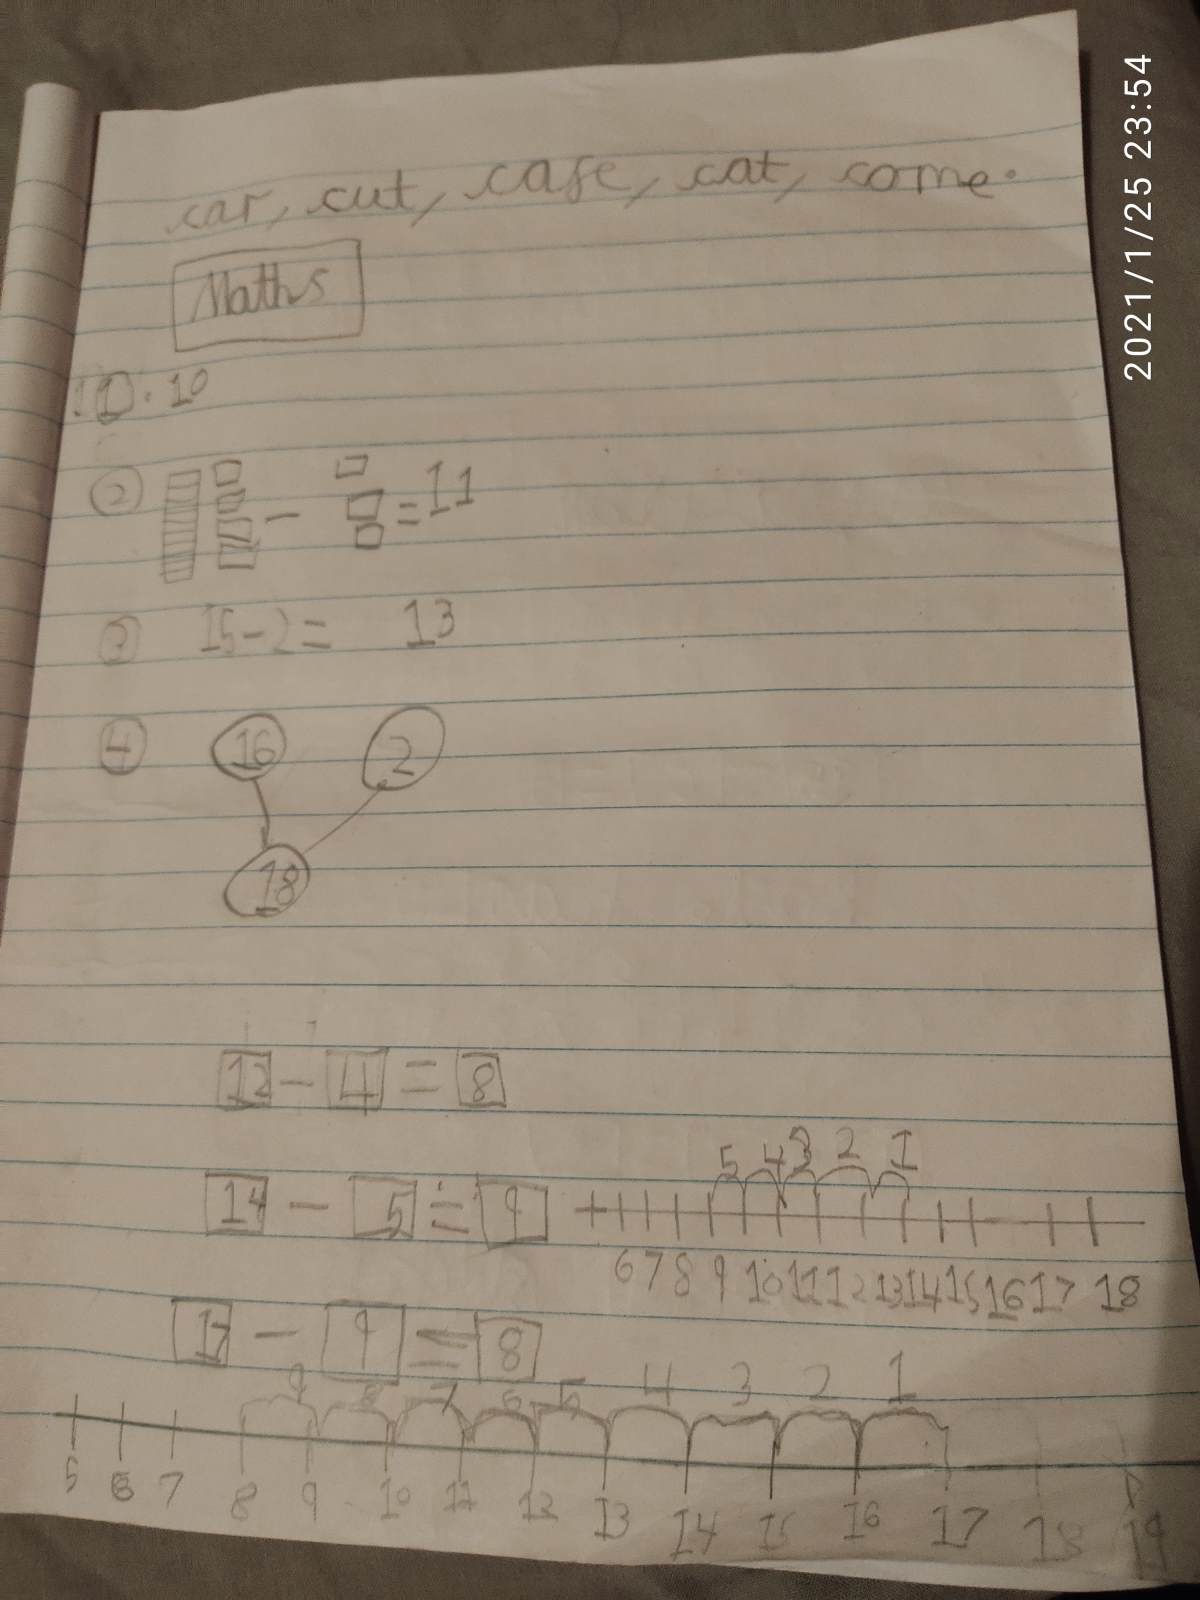 car, cut, case, cat, come.
Maths
1. 10
2 - = 11
3 15-2= 13
4 16 2
18
12 - 4 = 8
14 - 5 = 9
5 4 3 2 1
6 7 8 9 10 11 12 13 14 15 16 17 18
17 - 9 = 8
9 8 7 6 5 4 3 2 1
5 6 7 8 9 10 11 12 13 14 15 16 17 18 19
2021/1/25 23:54